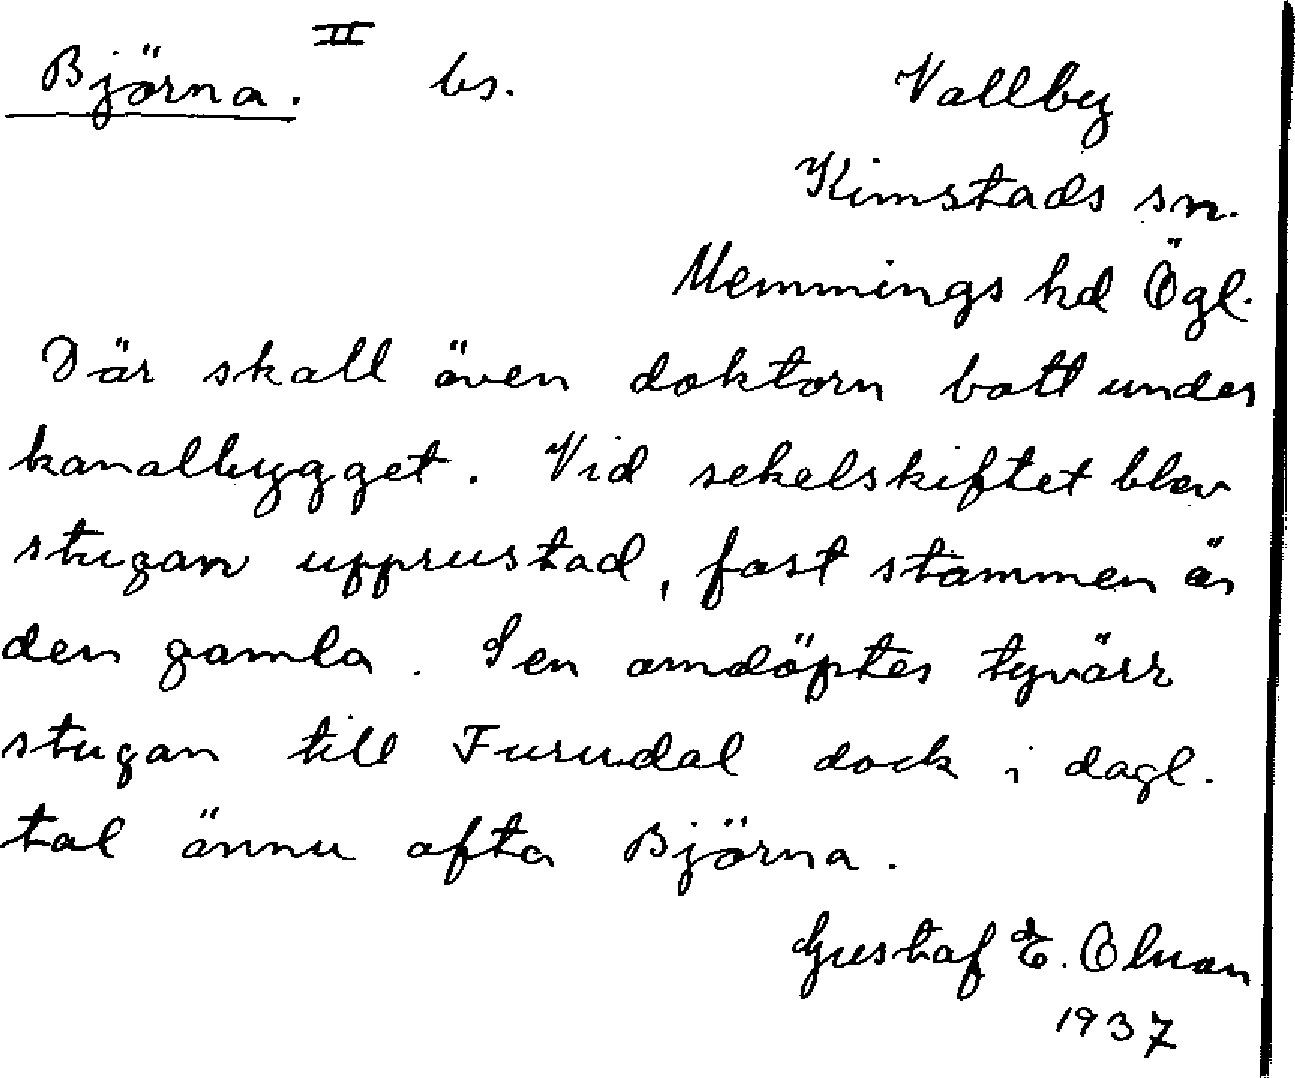 Björna. II bs. Vallby
Kimstads sn.
Memmings hd Ögl.
Där skall även doktorn bott under
kanalbygget. Vid sekelskiftet blev
stugan upprustad, fast stammen är
den gamla. Sen omdöptes tyvärr
stugan till Furudal dock i dagl.
tal ännu ofta Björna.
Gustaf E. Olsson
1937